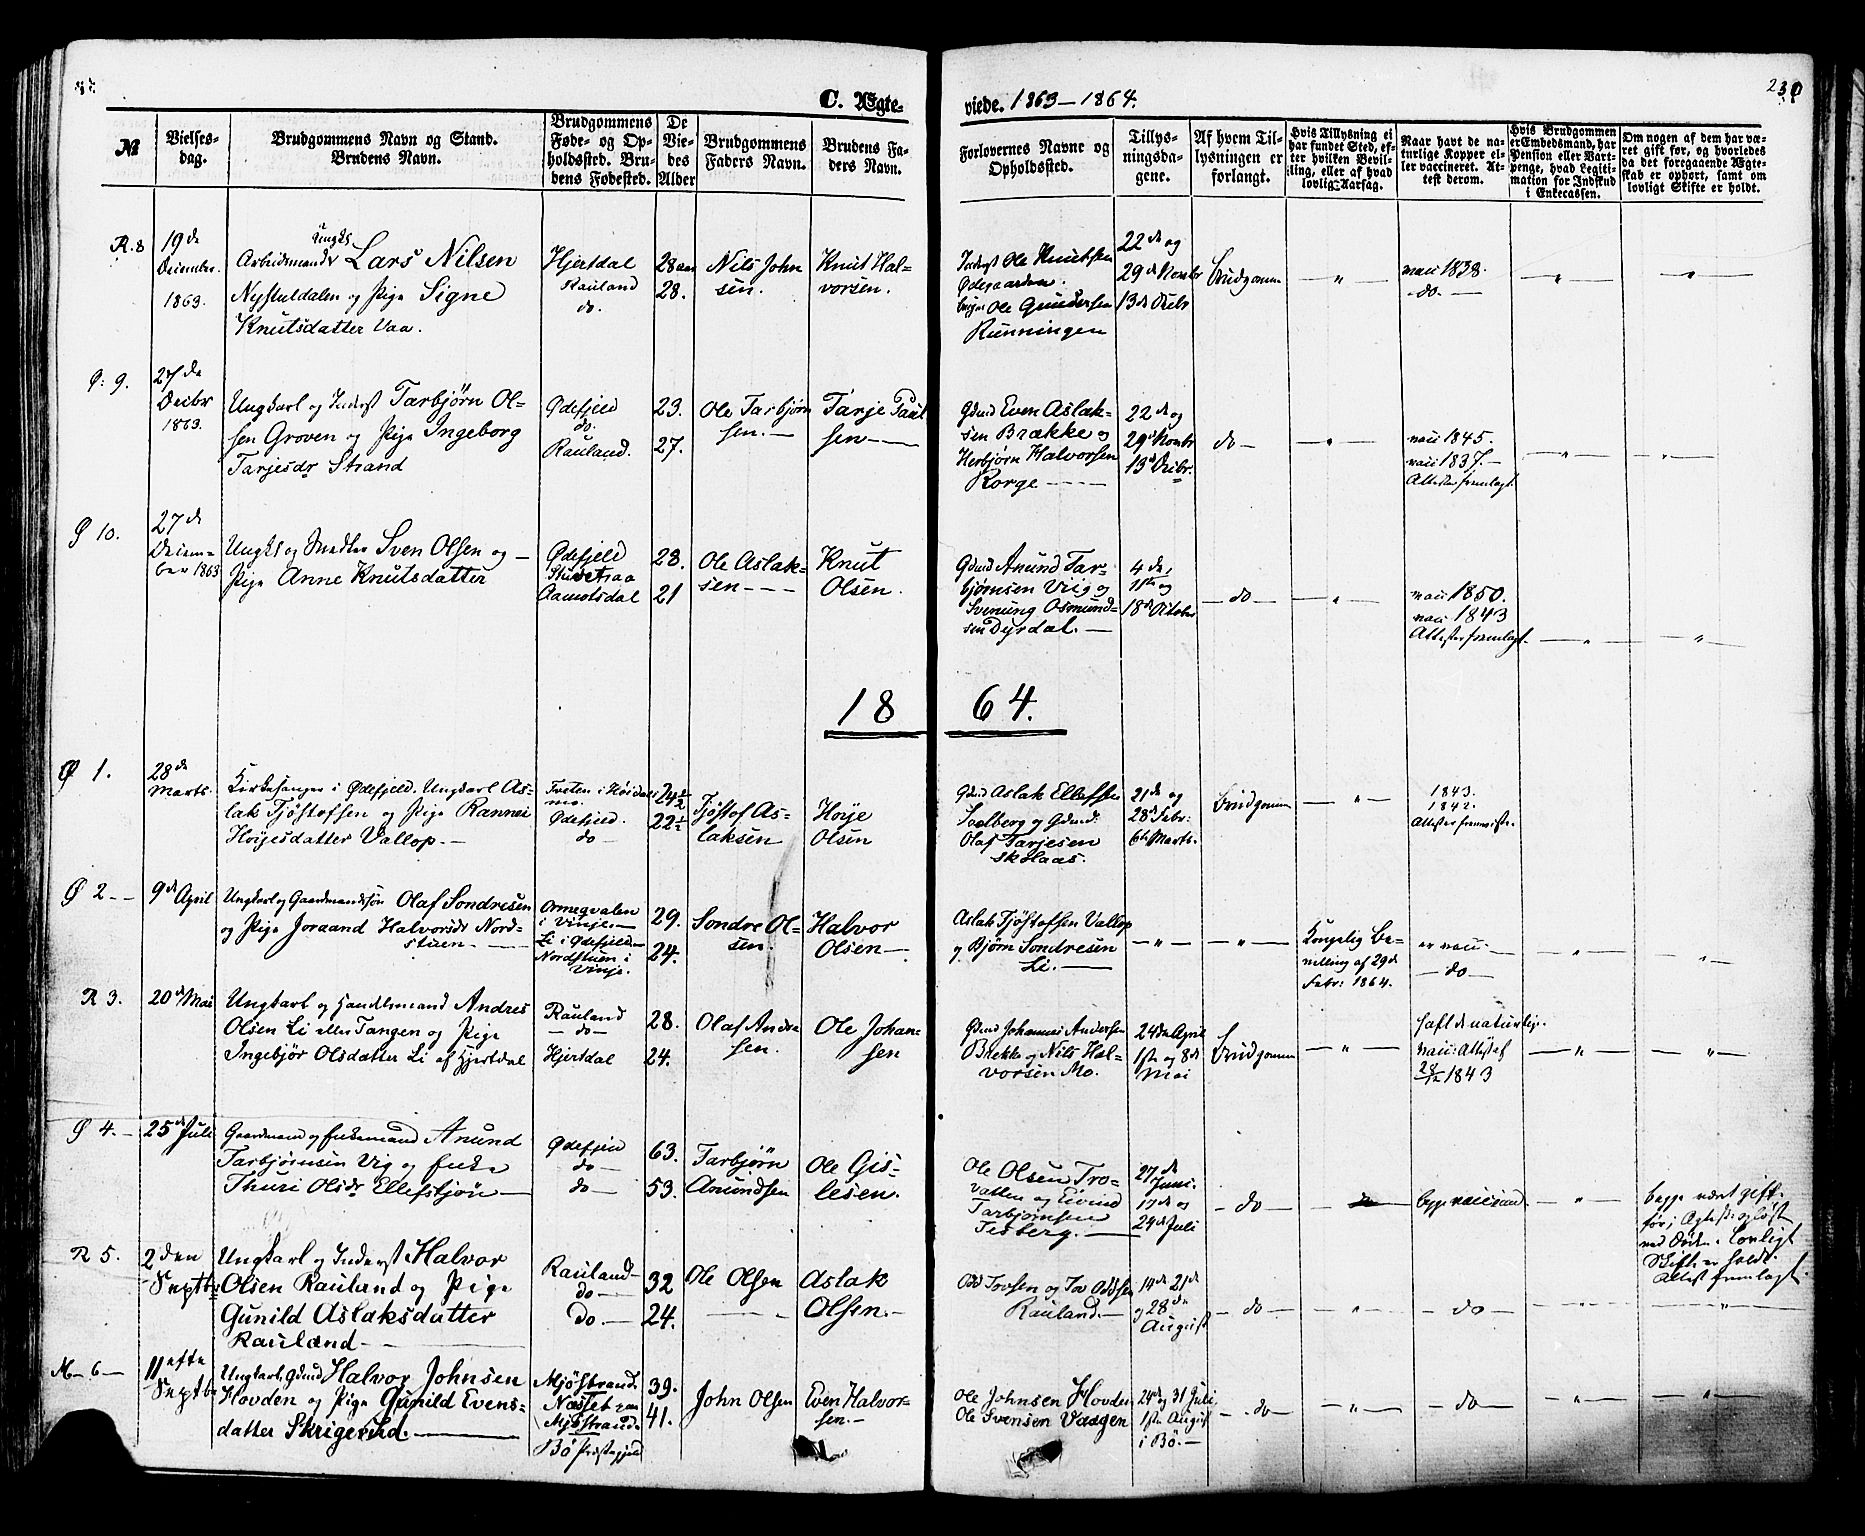 C. Ægte-
viede. 1863–1864.
230
№
Vielses-
dag.
Brudgommens Navn og Stand.
Brudens Navn.
Brudgommens
Føde- og Op-
holdssted. Bru-
dens Fødested.
De
Vie-
des
Alder
Brudgommens
Faders Navn.
Brudens Fa-
ders Navn.
Forlovernes Navne og
Opholdssted.
Tillys-
ningsda-
gene.
Af hvem Til-
lysningen er
forlangt.
Hvis Tillysning ei
har fundet Sted, ef-
ter hvilken Bevil-
ling, eller af hvad
lovlig Aarsag.
Naar havt de na-
turlige Kopper el-
ler vaccineret. At-
test derom.
Hvis Brudgommen
er Embedsmand, har
Pension eller Vart-
penge, hvad Legiti-
mation for Indskud
i Enkecassen.
Om nogen af dem har væ-
ret gift før, og hvorledes
da det foregaaende Ægte-
skab er ophørt, samt om
lovligt Skifte er holdt.
R. 8
19de
Decembr.
1863.
Ungk.
Arbeidsmand Lars Nilsen
Nystuldalen og Pige Signe
Knutsdatter Vaa.
Hjertdal
Rauland
do.
28
28.
Nils John
sen.
Knut Hal-
vorsen.
Inderst Ole Knutsen
Ødegaarden.
Ole Gundersen
Runningen
22de og
29de Novbr
13de Decbr
Brudgomm
"
vacc 1838.
do.
"
"
Ø: 9.
27de
Decbr
1863.
Ungkarl og Inderst Tarbjørn Ol-
sen Groven og Pige Ingeborg
Tarjesdr Strand
Ødefjeld
do.
Rauland.
23.
27.
Ole Tarbjørn
sen.
Tarje Paul
sen
Gdmd Even Aslak-
sen Brække og
Herbjørn Halvorsen
Rorge
22de og
29de Novbr
13de Decbr.
do
"
vacc 1845.
vacc 1837.
Attester fremlagt.
"
"
Ø 10.
27de
Decem-
ber 1863
Ungk. og Sven Olsen og
Pige Anne Knutsdatter
Ødefjeld
Aamotsdal
28.
21
Ole Aslak-
sen
Knut
Olsen.
Gdmd Anund Tar-
bjørnsen Viig og
Svenung Osmund-
sen Dyrdal.
4de,
11te og
18de Octobr
do
"
vacc 1850.
vacc 1843
Attester fremlagt.
"
"
1864.
Ø 1.
28de
Marts.
Kirkesanger i Ødefjeld. Ungkarl As-
lak Tjøstofsen og Pige Rannei
Høijesdatter Vallop.
Tveten i Høidals
mo.
Ødefjeld.
do
24½
22½
Tjøstof As-
laksen
Høije
Olsen
Gdmd Aslak Ellefsen
Svalberg og Gdmd.
Olaf Tarjesen
Skolaas.
21de og
28de Febr:
6te Marts.
Brudgomm
"
1843.
1842.
Attester fremviste.
Ø 2
9de April
Ungkarl og Gaardmandssøn Olaf Sondresen
og Pige Joraand Halvorsdr Nord-
stuen
i Vinje.
Li i Ødefjeld
Nordstuen i
Vinje.
29.
24.
Sondre Ol-
sen
Halvor
Olsen
Aslak Tjøstofsen Vallop
og Bjørn Sondresen
Li.
"
"
Kongelig Be-
villing af 29de
Febr: 1864.
er vacc.
do
"
"
R 3.
20de Mai
Ungkarl og Handelsmand Andres
Olsen Li eller Tangen og Pige
Ingebjør Olsdatter Li af Hjertdal
Rauland
do
Hjertdal
28.
24.
Olaf Andre
sen.
Ole Johan-
sen
Gdmd Johannes Andersen
Brekke og Nils Hal-
vorsen Mo.
24de April
1ste og 8de
Mai
Brudgomm
"
haft de naturlige.
vacc: Attest af
28/12 1843
"
"
Ø 4.
25de Juli
Gaardmand og Enkemand Anund
Tarbjørnsen Vig og Enke
Thuri Olsdr Ellefstjøn
Ødefjeld
do
do
63.
53.
Tarbjørn
Anundsen
Ole Gis-
lesen.
Ole Olsen Tro-
vatten og Eivind
Tarbjørnsen
Tesberg.
27de
Juni.
17de og
24de Juli
do
do
begge vaccinered
"
begge været gift
før; Ægtesk. opløst
ved Døden. Lovligt
Skifte er holdt.
Attest fremlagt.
R 5.
2den
Septbr
Ungkarl og Inderst Halvor
Olsen Rauland og Pige
Gunild Aslaksdatter
Rauland
Rauland
do
Do.
32
24.
Ole Olsen
Aslak
Olsen.
Odd Torsen og Tor Oddsen
Rauland.
14de 21de
og 28de
August
do
"
do
"
"
M 6
11efte
Septbr
Ungkarl, Gdmd Halvor Johnsen
Hovden og Pige Gunild Evens-
datter Skrigerud.
Mjøstrand.
Næsset
Mjøstrand
Bø Præstegjeld
39.
41.
John Olsen
Even Halvor-
sen.
Ole Johnsen Hovden
Ole Svensen Vaagen
24de og 31 Juli
1ste August
i Bø.
do
"
do
"
"